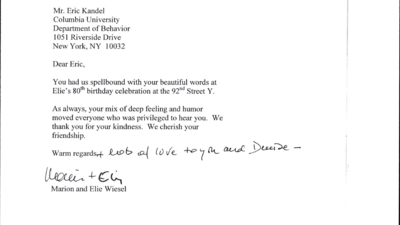 Mr. Eric Kandel
Columbia University
Department of Behavior
1051 Riverside Drive
New York, NY 10032
Dear Eric,
You had us spellbound with your beautiful words at
Elie's 80th birthday celebration at the 92nd Street Y.
As always, your mix of deep feeling and humor
moved everyone who was privileged to hear you. We
thank you for your kindness. We cherish your
friendship.
Warm regards + lots of love to you and Denise –
Marion + Elie
Marion and Elie Wiesel